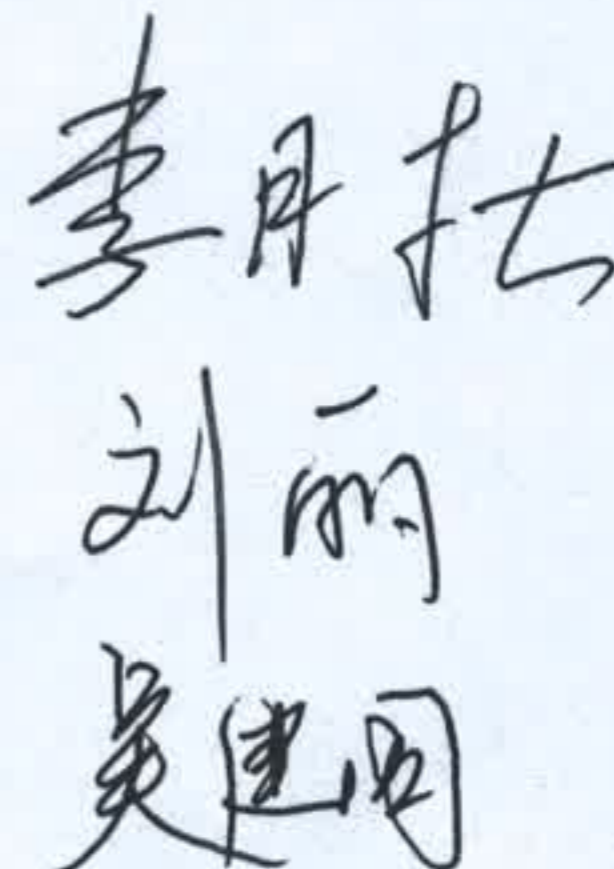 李月
刘丽
吴建国